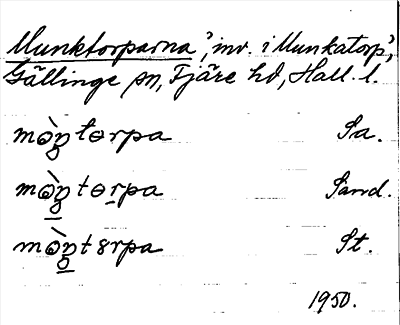 Munktorparna, 'inv. i Munkatorp',
Gällinge sn, Fjäre hd, Hall. l.
mòŋtorpa Sa.
mòŋtorpa Sand.
mòŋtɞrpa St.
1950.